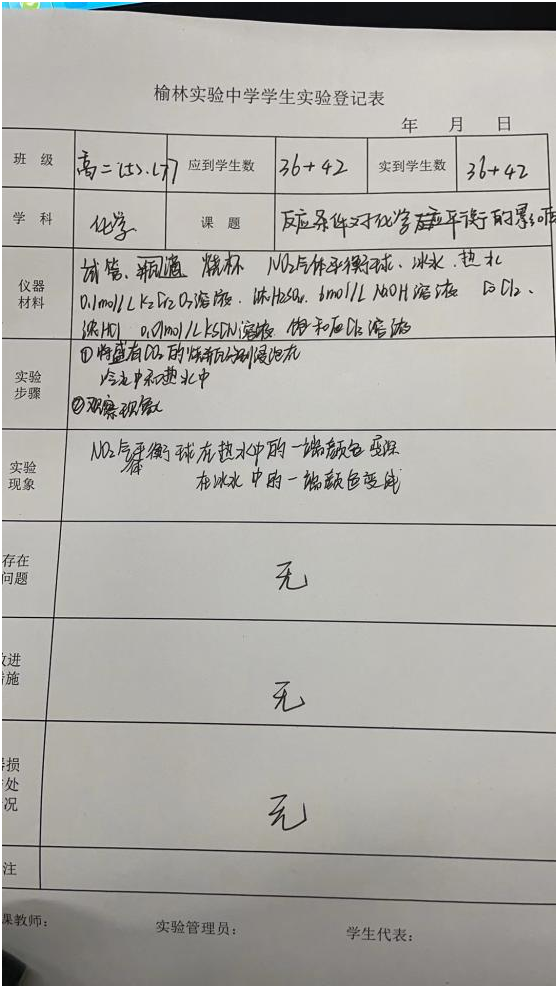 榆林实验中学学生实验登记表
年 月 日
班 级 高二(5).(7) 应到学生数 36+42 实到学生数 36+42
学 科 化学 课 题 反应条件对化学平衡的影响
仪器
材料
试管、滴 烧杯 NO₂气体平衡球、冰水、热水
0.1mol/L K₂Cr₂O₇溶液、浓H₂SO₄ 6mol/L NaOH溶液 CoCl₂、
浓HCl 0.01mol/L KSCN溶液 饱和 溶液
实验
步骤
①将盛有 的烧瓶分别浸泡在
冷水中和热水中
②观察现象
实验
现象
NO₂气体平衡球在热水中的一端颜色变深
在冰水中的一端颜色变浅
存在
问题
无
改进
措施
无
损
处
况
无
注
课教师：
实验管理员：
学生代表：